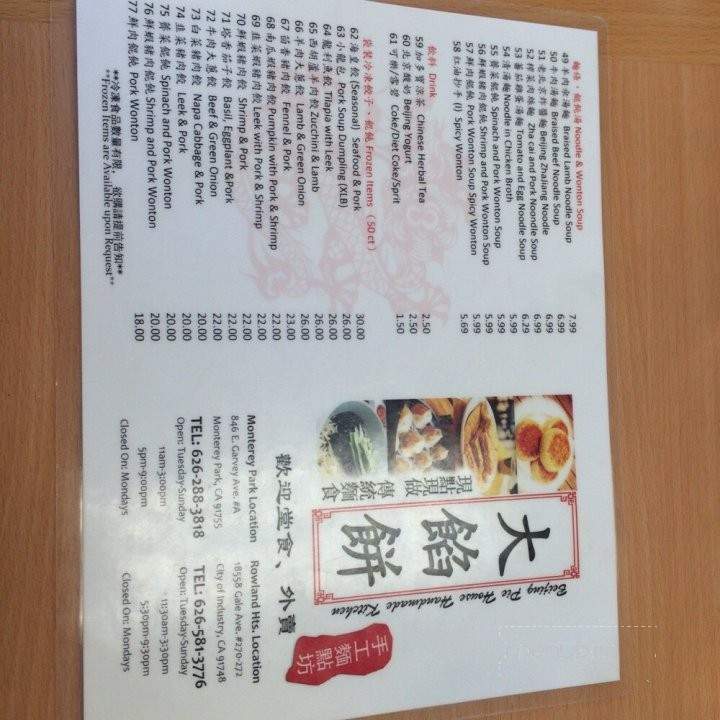 麵條、餛飩湯 Noodle & Wonton Soup
49 羊肉汆湯麵 Braised Lamb Noodle Soup 7.99
50 牛肉湯麵 Braised Beef Noodle Soup 6.99
51 老北京炸醬麵 Beijing ZhaJiang Noodle 6.99
52 榨菜肉絲麵 Zha cai and Pork Noondle Soup 6.29
53 蕃茄雞蛋湯麵 Tomato and Egg Noodle Soup 5.99
54 清湯麵 Noodle in Chicken Broth 5.99
55 薺菜餛飩 Spinach and Pork Wonton Soup 5.99
56 鮮蝦豬肉餛飩 Shrimp and Pork Wonton Soup 5.99
57 鮮肉餛飩 Pork Wonton Soup Spicy Wonton 5.99
58 紅油抄手 Spicy Wonton 5.69
飲料 Drink
59 加多寶涼茶 Chinese Herbal Tea 2.50
60 北京酸奶 Beijing Yogurt 2.50
61 可樂/雪碧 Coke/Diet Coke/Sprit 1.50
袋裝冷凍餃子、餛飩 Frozen Items (50 ct)
62 海皇餃 (Seasonal) Seafood & Pork 30.00
63 小籠包 Pork Soup Dumpling (XLB) 26.00
64 龍利魚餃 Tilapia with Leek 26.00
65 西胡蘆羊肉餃 Zucchini & Lamb 26.00
66 羊肉大蔥餃 Lamb & Green Onion 26.00
67 茴香豬肉餃 Fennel & Pork 23.00
68 南瓜蝦豬肉餃 Pumpkin with Pork & Shrimp 22.00
69 韭菜蝦豬肉餃 Leek with Pork & Shrimp 22.00
70 鮮蝦豬肉餃 Shrimp & Pork 22.00
71 塔香茄子餃 Basil, Eggplant &Pork 22.00
72 牛肉大蔥餃 Beef & Green Onion 22.00
73 白菜豬肉餃 Napa Cabbage & Pork 20.00
74 韭菜豬肉餃 Leek & Pork 20.00
75 薺菜餛飩 Spinach and Pork Wonton 20.00
76 鮮蝦豬肉餛飩 Shrimp and Pork Wonton 20.00
77 鮮肉餛飩 Pork Wonton 18.00
**冷凍食品數量有限, 欲購請提前告知**
**Frozen Items are Available upon Request**
大餡餅
Beijing Pie House Handmade Kitchen
現點現做
傳統麵食
手工麵點坊
歡迎堂食、外賣
Monterey Park Location
846 E. Garvey Ave. #A
Monterey Park, CA 91755
TEL: 626-288-3818
Open: Tuesday-Sunday
11am-3:00pm
5pm-9:00pm
Closed On: Mondays
Rowland Hts. Location
18558 Gale Ave. #270-272
City of Industry, CA 91748
TEL: 626-581-3776
Open: Tuesday-Sunday
11:30am-3:30pm
5:30pm-9:30pm
Closed On: Mondays